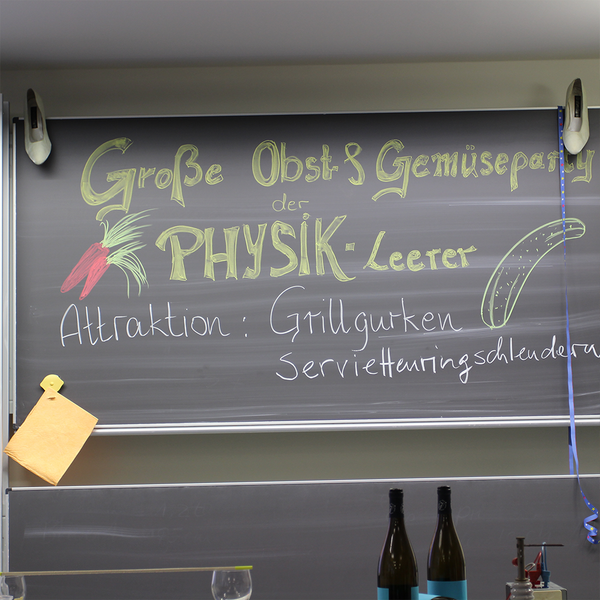 Große Obst- & Gemüseparty
der
PHYSIK-Leerer
Attraktion: Grillgurken
Serviettenringschleudern